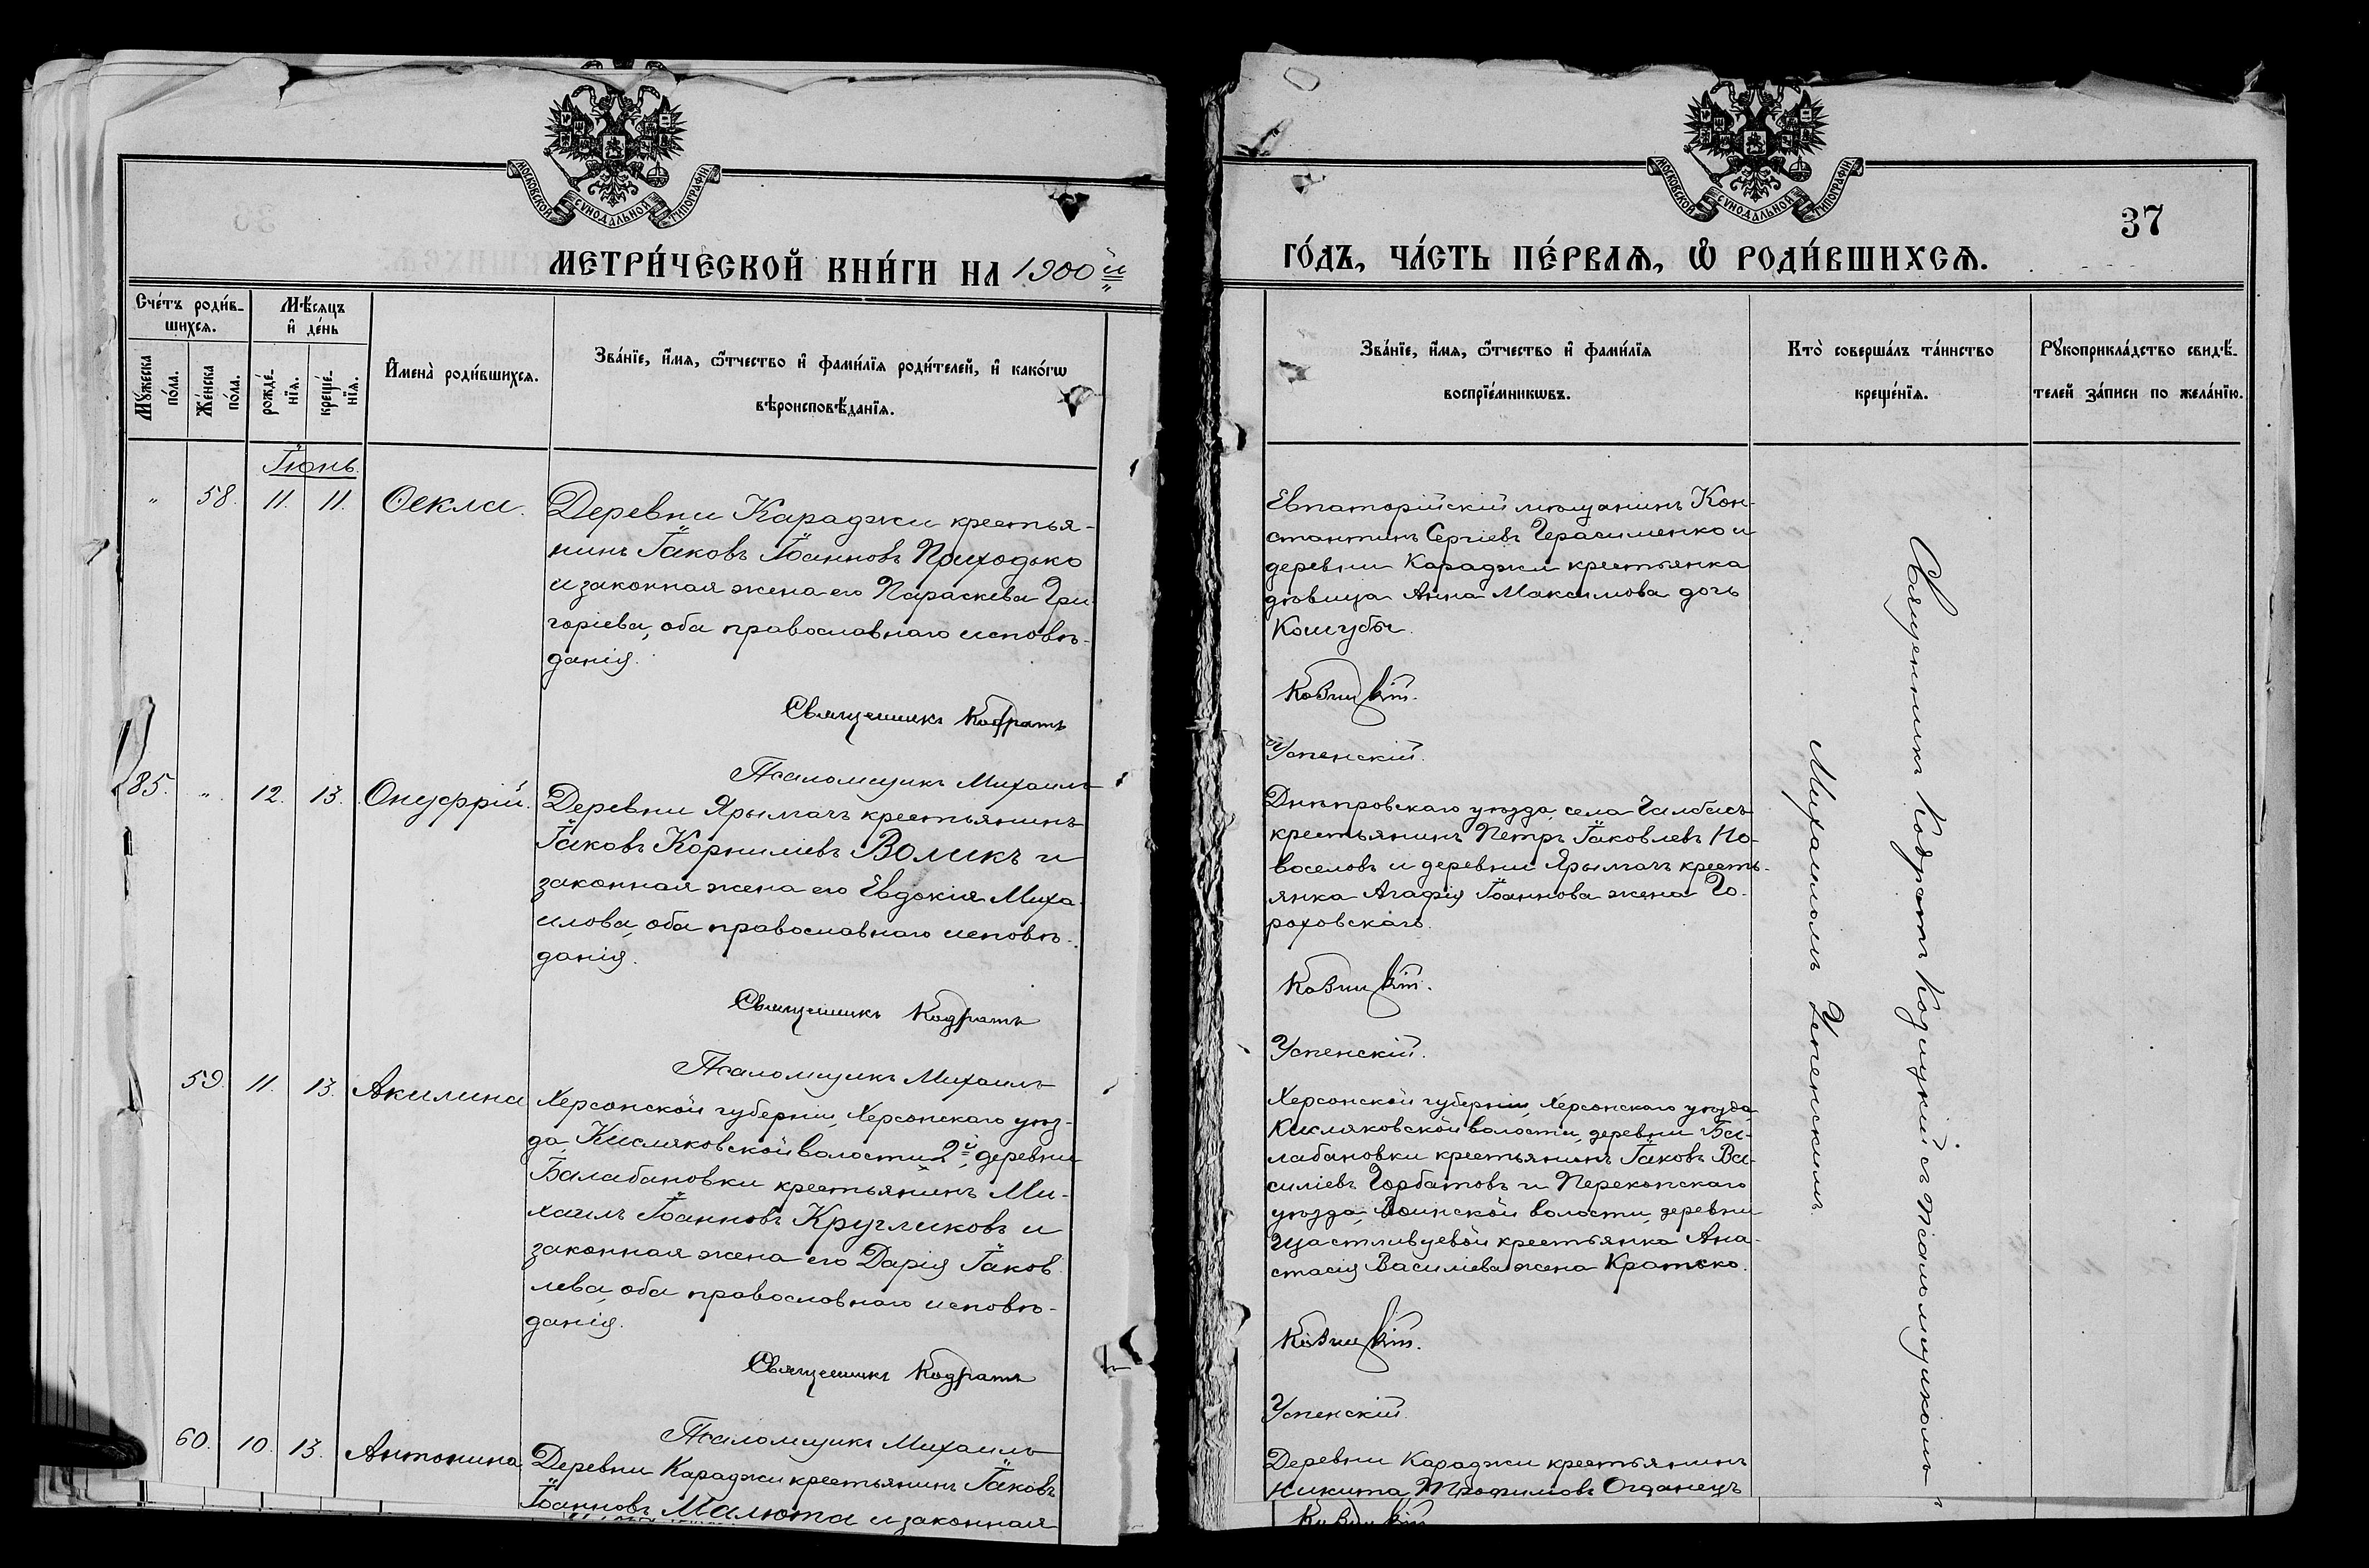 МОСКОВСКОЙ СУНОДАЛЬНОЙ ТИПОГРАФІИ
МЕТРИ́ЧЕСКОЙ КНИ́ГИ НА 1900й
Сче́тъ роди́в-
шихсѧ.
Мѣ́сѧцъ
и҆ де́нь
Мꙋ́жеска
по́ла.
Же́нска
по́ла.
рожде́-
нїѧ.
креще́-
нїѧ.
И҆мена̀ роди́вшихсѧ.
Зва́нїе, и҆́мѧ, ѻ҆́тчество и҆ фами́лїѧ роди́телей, и҆ како́гѡ
вѣроисповѣ́данїѧ.
Іюнь.
" 58. 11. 11. Ѳекла.
Деревни Караджи крестья-
нинъ Іаковъ Іоанновъ Приходько
и законная жена его Параскева Гри-
горіева, оба православнаго исповѣ-
данія.
Священникъ Кодратъ
Псаломщикъ Михаилъ
85. " 12. 13. Онуфрій.
Деревни Ярылгачъ крестьянинъ
Іаковъ Корниліевъ Воликъ и
законная жена его Евдокія Миха-
илова, оба православнаго исповѣ-
данія.
Священникъ Кодратъ
Псаломщикъ Михаилъ
59. 11. 13. Акилина
Херсонской губерніи, Херсонскаго уѣз-
да, Кисляковской волости 2й, деревни
Балабановки крестьянинъ Ми-
хаилъ Іоанновъ Кругликовъ и
законная жена его Дарія Іаков-
лева, оба православнаго исповѣ-
данія.
Священникъ Кодратъ
Псаломщикъ Михаилъ
60. 10. 13. Антонина
Деревни Караджи крестьянинъ Іаковъ
Іоанновъ Малюта и законная
МОСКОВСКОЙ СУНОДАЛЬНОЙ ТИПОГРАФІИ
37
ГО́ДЪ, ЧА́СТЬ ПЕ́РВАѦ, Ѡ҆ РОДИ́ВШИХСѦ.
Зва́нїе, и҆́мѧ, ѻ҆́тчество и҆ фами́лїѧ
воспрїе́мникѡвъ.
Кто̀ соверша́лъ та́инство
креще́нїѧ.
Рꙋкоприкла́дство свидѣ́-
телей за́писи по жела́нїю.
Евпаторійскій мѣщанинъ Кон-
стантинъ Сергіевъ Герасименко и
деревни Караджи крестьянка
дѣвица Анна Максимова дочь
Кошубы.
Козицкій.
Успенскій.
Днѣпровскаго уѣзда, села Чалбасъ
крестьянинъ Петръ Іаковлевъ Но-
воселовъ и деревни Ярылгачъ кресть-
янка Агафія Іоаннова жена Го-
роховскаго.
Козицкій.
Успенскій.
Херсонской губерніи, Херсонскаго уѣзда,
Кисляковской волости, деревни Ба-
лабановки крестьянинъ Іаковъ Ва-
силіевъ Горбатовъ и Перекопскаго
уѣзда, Воинской волости, деревни
Щастливцевой крестьянка Ана-
стасія Василіева жена Кратько.
Козицкій.
Успенскій.
Деревни Караджи крестьянинъ
Никита Трофимовъ Огданецъ
Козицкій
Священникъ Кодратъ Козицкій съ псаломщикомъ
Михаиломъ Успенскимъ.